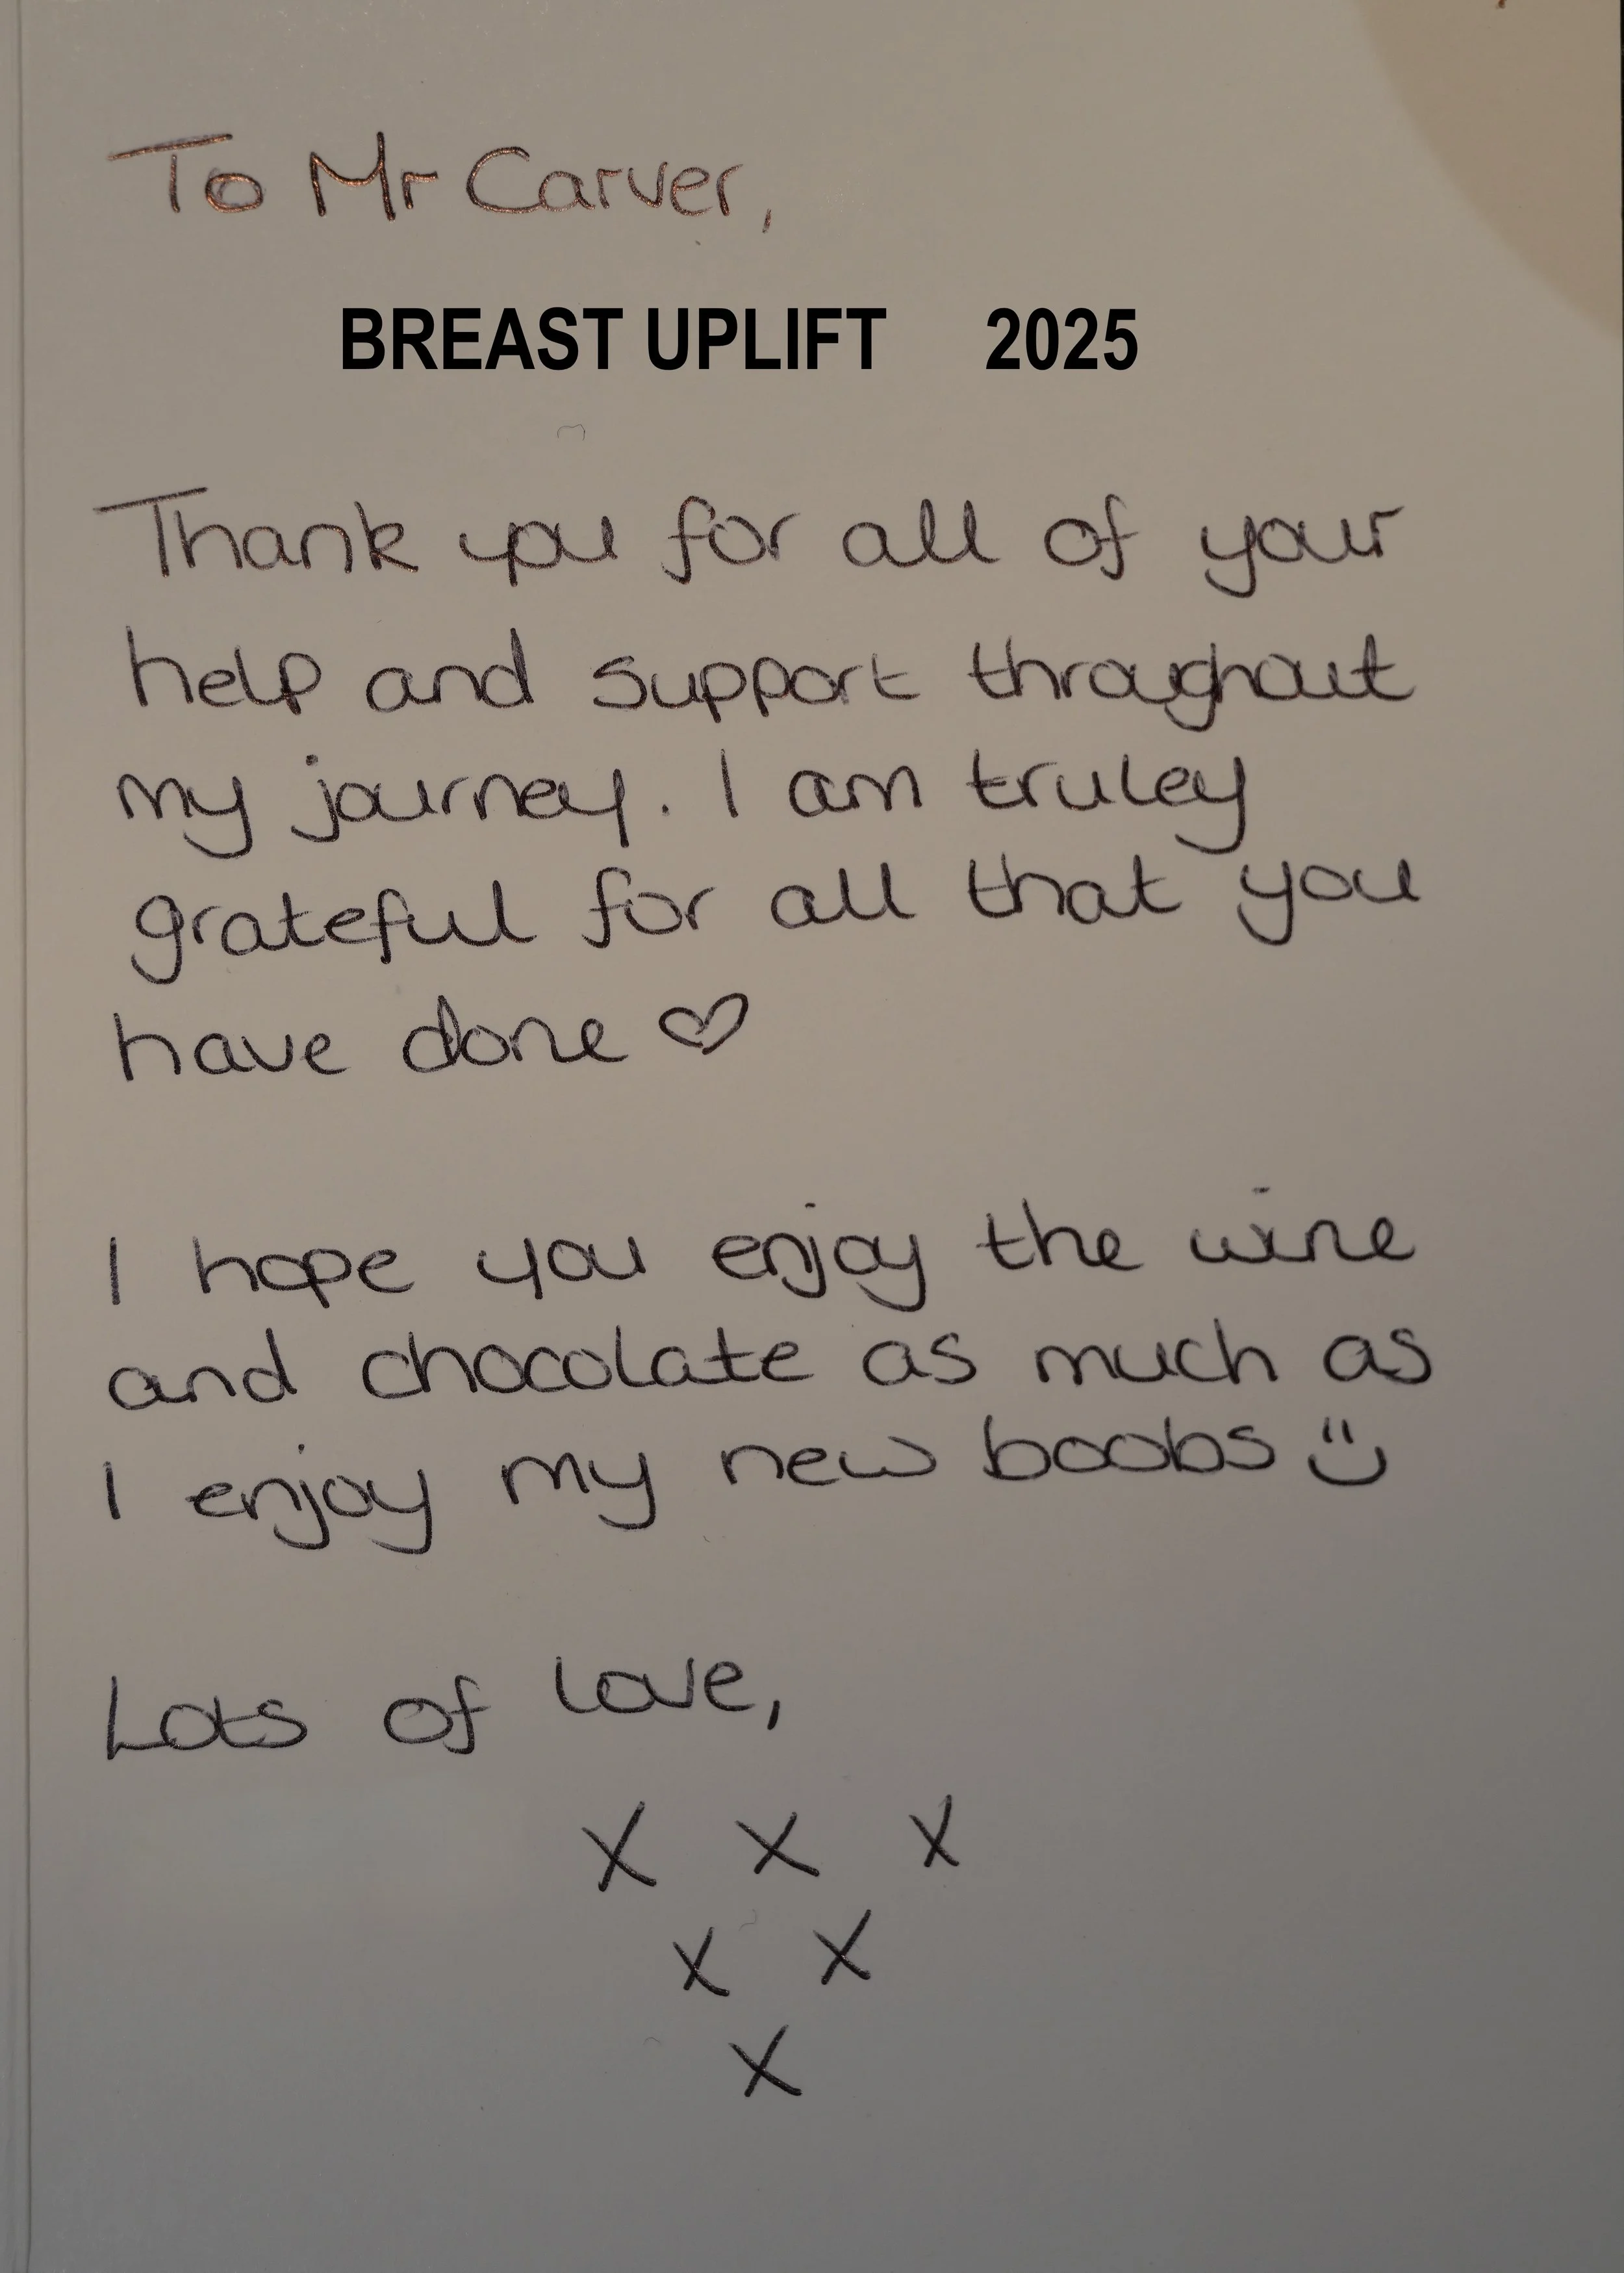 To Mr Carver,
BREAST UPLIFT 2025
Thank you for all of your
help and support throughout
my journey. I am truley
grateful for all that you
have done ♡
I hope you enjoy the wine
and chocolate as much as
I enjoy my new boobs :)
Lots of love,
x x x
x x
x